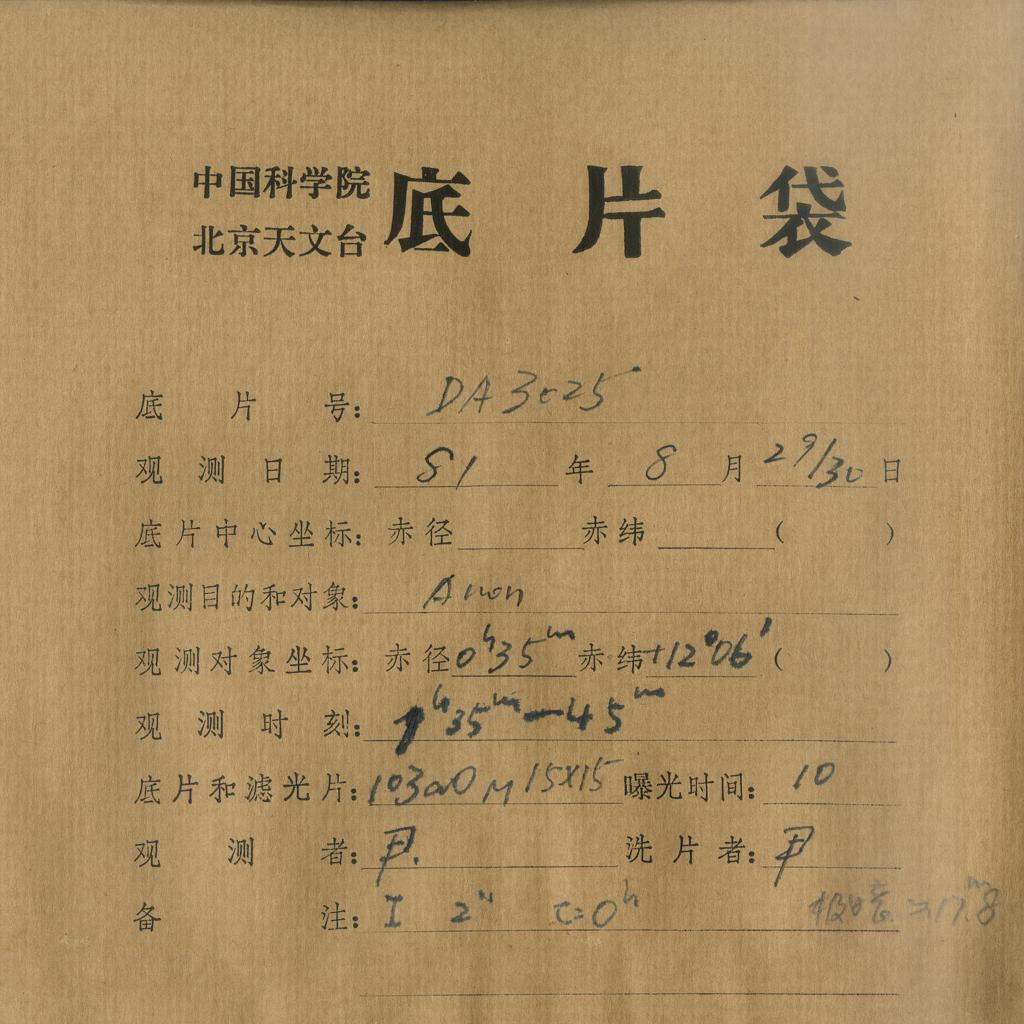 中国科学院
北京天文台
底片袋
底片号: DA3025
观测日期: 81年 8月 29/30日
底片中心坐标: 赤径 赤纬 ( )
观测目的和对象: Anon
观测对象坐标: 赤径 0ʰ35ᵐ 赤纬 +12°06′ ( )
观测时刻: 1ʰ35ᵐ—45ᵐ
底片和滤光片: 103aO M 15×15 曝光时间: 10
观测者: 尹. 洗片者: 尹
备注: I 2" t=0ʰ 极暗 17ᵐ.8